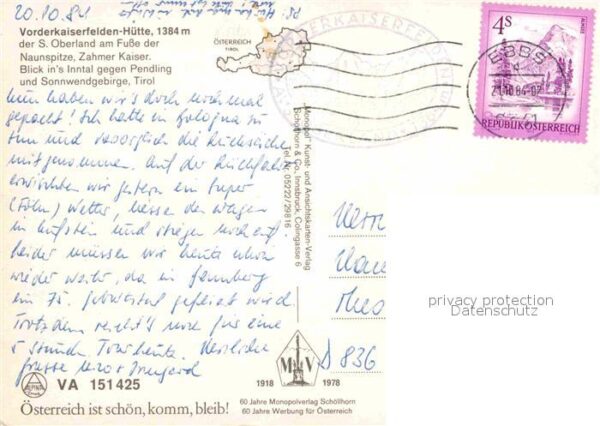 20.10.84
Vorderkaiserfelden-Hütte, 1384 m
der S. Oberland am Fuße der
Naunspitze, Zahmer Kaiser.
Blick in's Inntal gegen Pendling
und Sonnwendgebirge, Tirol
ÖSTERREICH
TIROL
4S
REPUBLIK ÖSTERREICH
EBBS
21.10.84-07
nun haben wir's doch noch mal
gepackt! Ich hatte in Bologna zu
tun und die
mitgenommen. Auf der Rückfahrt
erwischten wir gestern ein Super
(Föhn) Wetter, den Wagen
in Kufstein und stiegen noch auf
leider müssen wir heute schon
wieder weiter, da in
ein 75. Geburtstag gefeiert wird.
Trotzdem reicht's noch für eine
5 Stunden Tour heute. Herzliche
Grüsse Irmgard
"Monopol" Kunst- und Ansichtskarten-Verlag
Schöllhorn & Co., Innsbruck, Colingasse 6
Tel. Nr. 05222/29816
Herrn
Theo
privacy protection
Datenschutz
D 836
MV
1918 1978
VA 151425
Österreich ist schön, komm, bleib!
60 Jahre Monopolverlag Schöllhorn
60 Jahre Werbung für Österreich